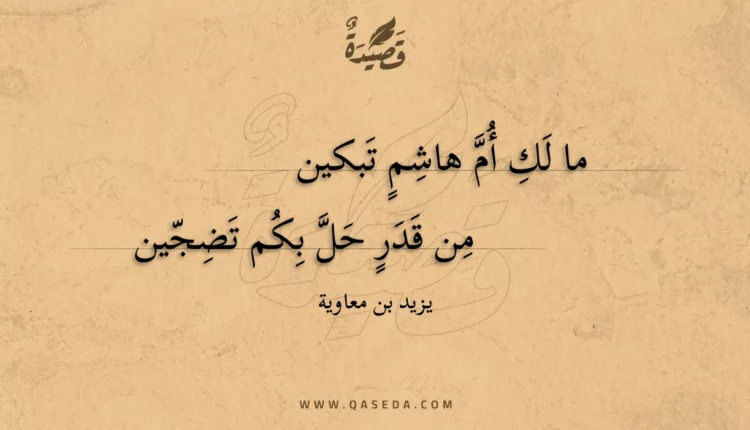 قَصِيدَةٌ
ما لَكِ أُمَّ هاشِمٍ تَبكين
مِن قَدَرٍ حَلَّ بِكُم تَضِجّين
يزيد بن معاوية
WWW.QASEDA.COM